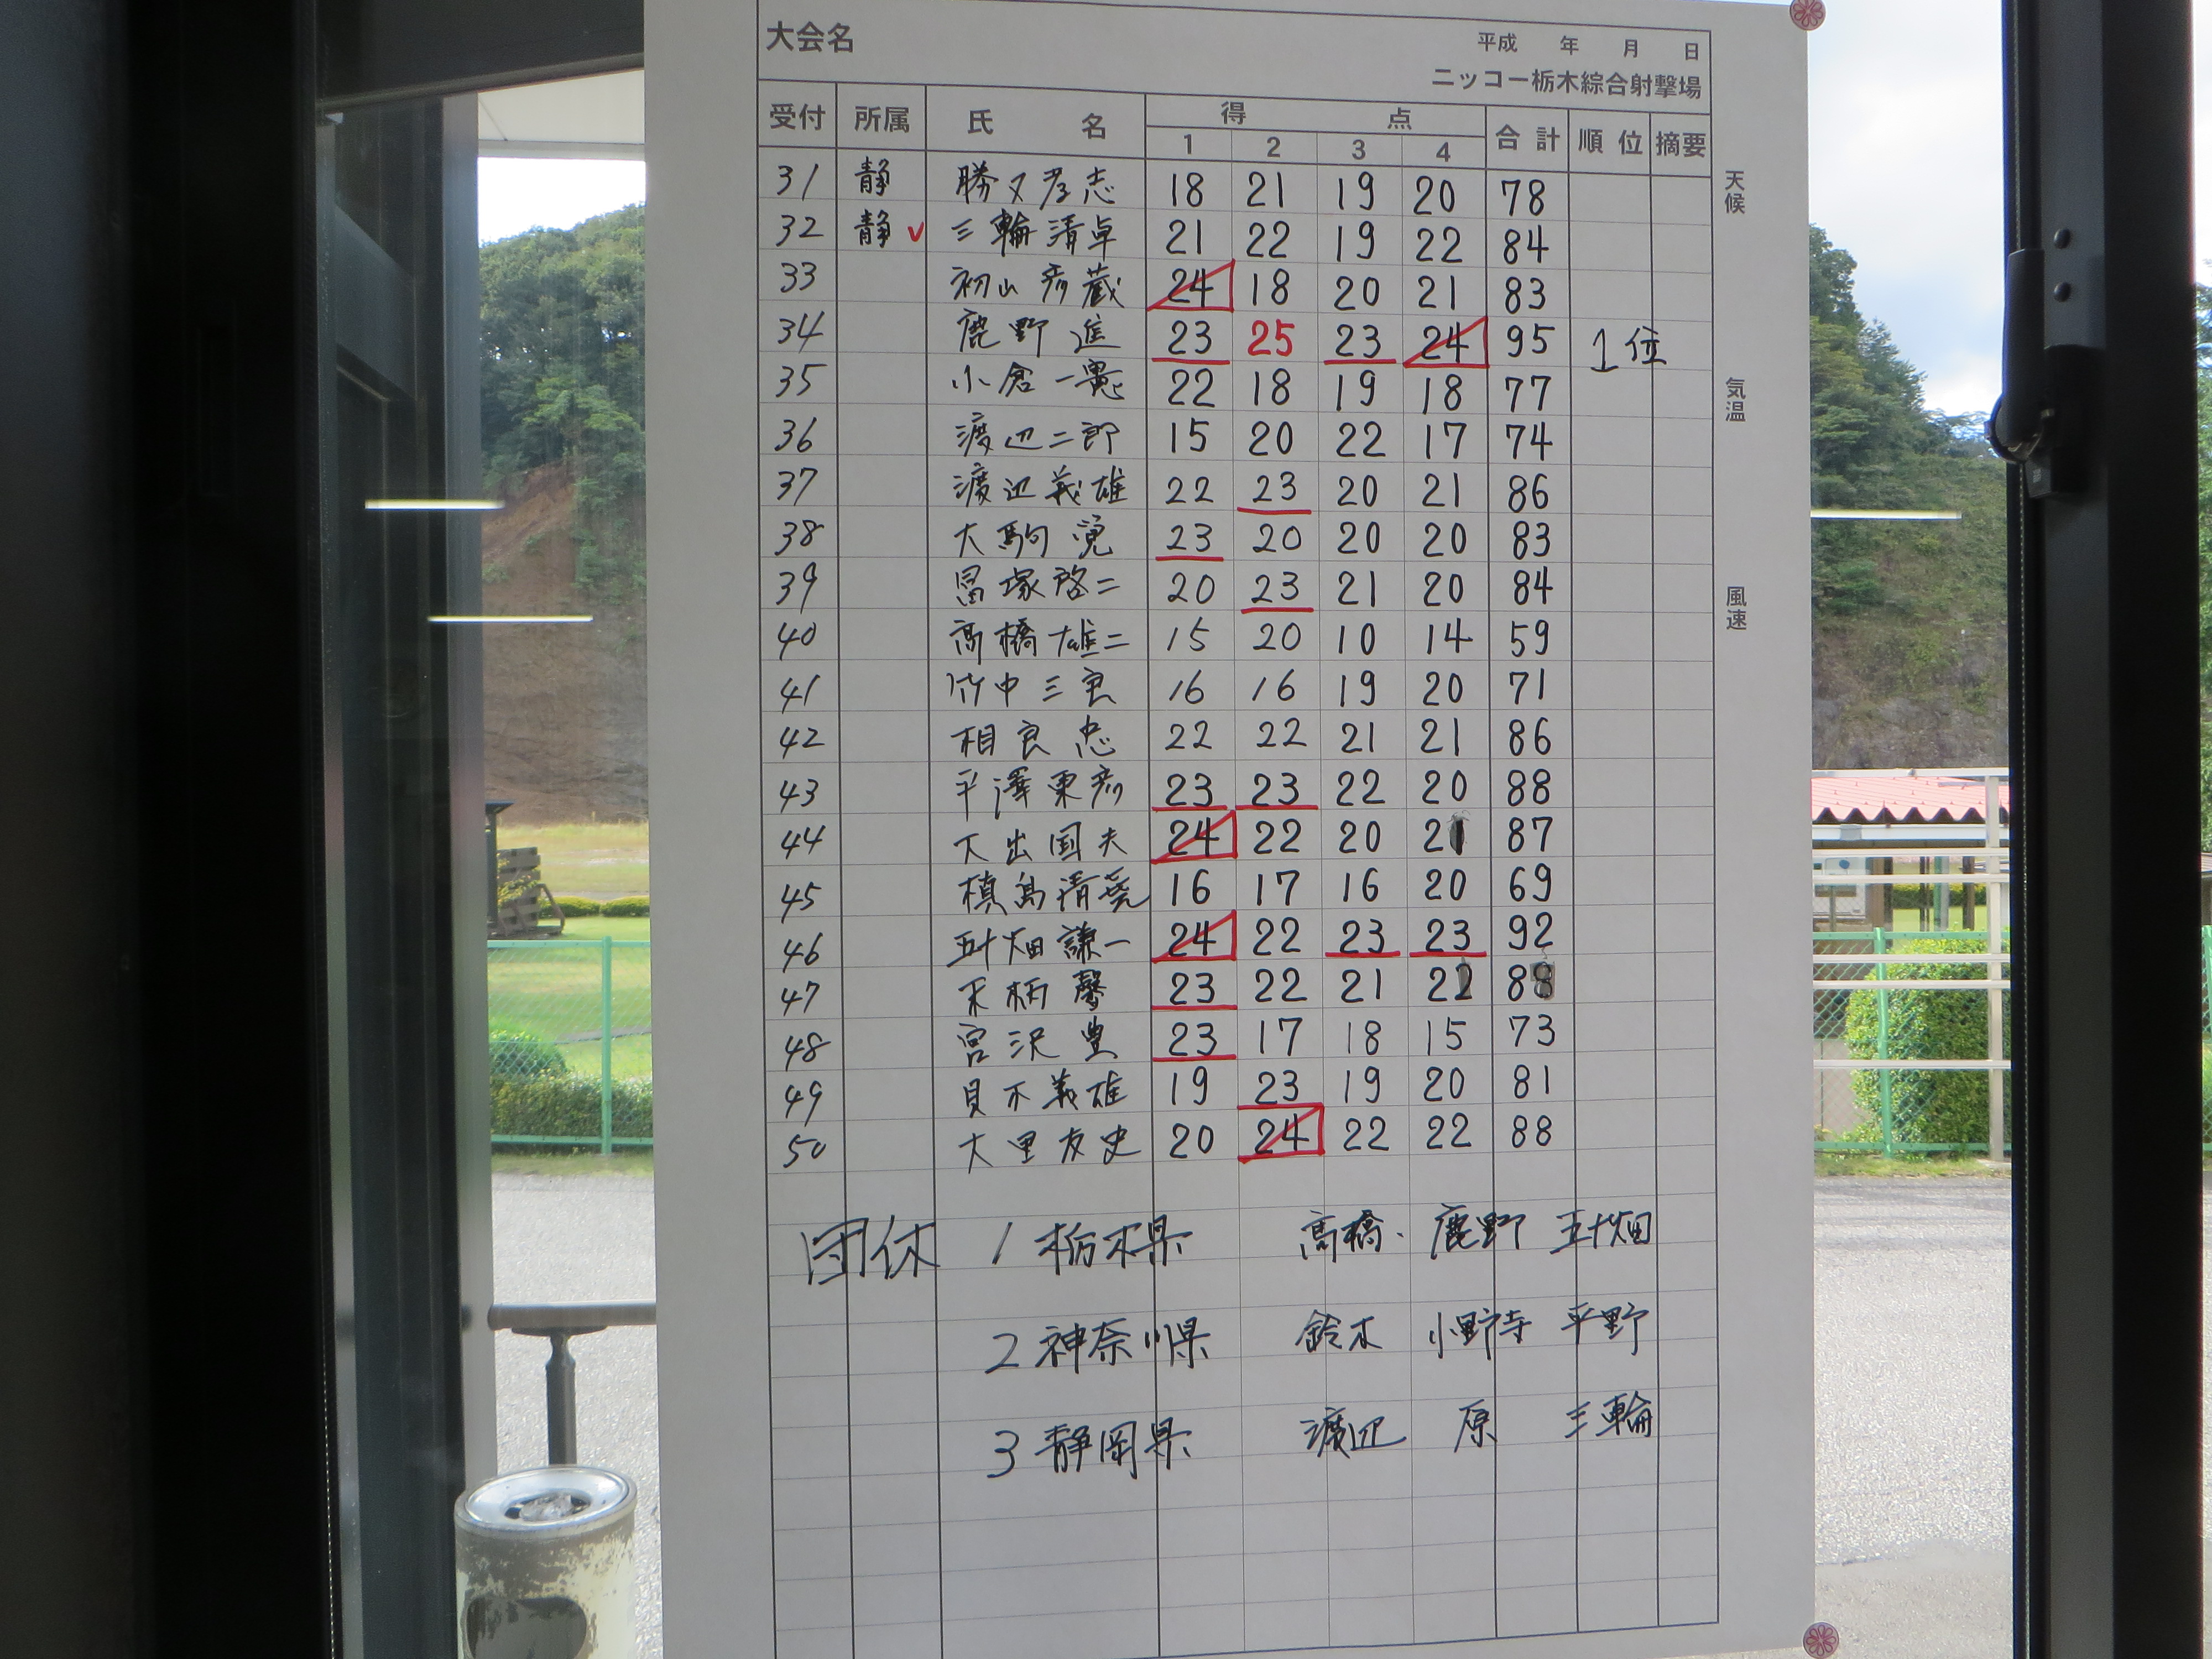 大会名
平成 年 月 日
ニッコー栃木綜合射撃場
受付 所属 氏 名 得 点 合計 順位 摘要
1 2 3 4
31 静 勝又孝志 18 21 19 20 78
32 静 ✓ 三輪清卓 21 22 19 22 84
33 初山彦蔵 24 18 20 21 83
34 鹿野進 23 25 23 24 95 1位
35 小倉一憲 22 18 19 18 77
36 渡辺二郎 15 20 22 17 74
37 渡辺義雄 22 23 20 21 86
38 大駒 23 20 20 20 83
39 冨塚啓二 20 23 21 20 84
40 高橋雄二 15 20 10 14 59
41 竹中三良 16 16 19 20 71
42 相良忠 22 22 21 21 86
43 平澤東彦 23 23 22 20 88
44 大出国夫 24 22 20 21 87
45 槙島清 16 17 16 20 69
46 五十畑謙一 24 22 23 23 92
47 柄馨 23 22 21 22 88
48 宮沢豊 23 17 18 15 73
49 貝木義雄 19 23 19 20 81
50 大里友史 20 24 22 22 88
団体 1 栃木県 高橋・鹿野 五十畑
2 神奈川県 鈴木 小野寺 平野
3 静岡県 渡辺 原 三輪
天候
気温
風速